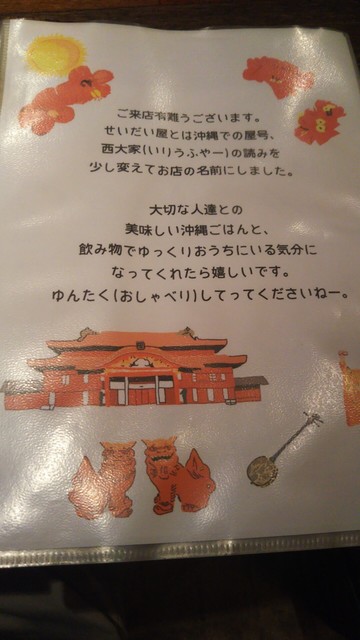 ご来店有難うございます。
せいだい屋とは沖縄での屋号、
西大家(いりうふやー)の読みを
少し変えてお店の名前にしました。
大切な人達との
美味しい沖縄ごはんと、
飲み物でゆっくりおうちにいる気分に
なってくれたら嬉しいです。
ゆんたく(おしゃべり)してってくださいねー。